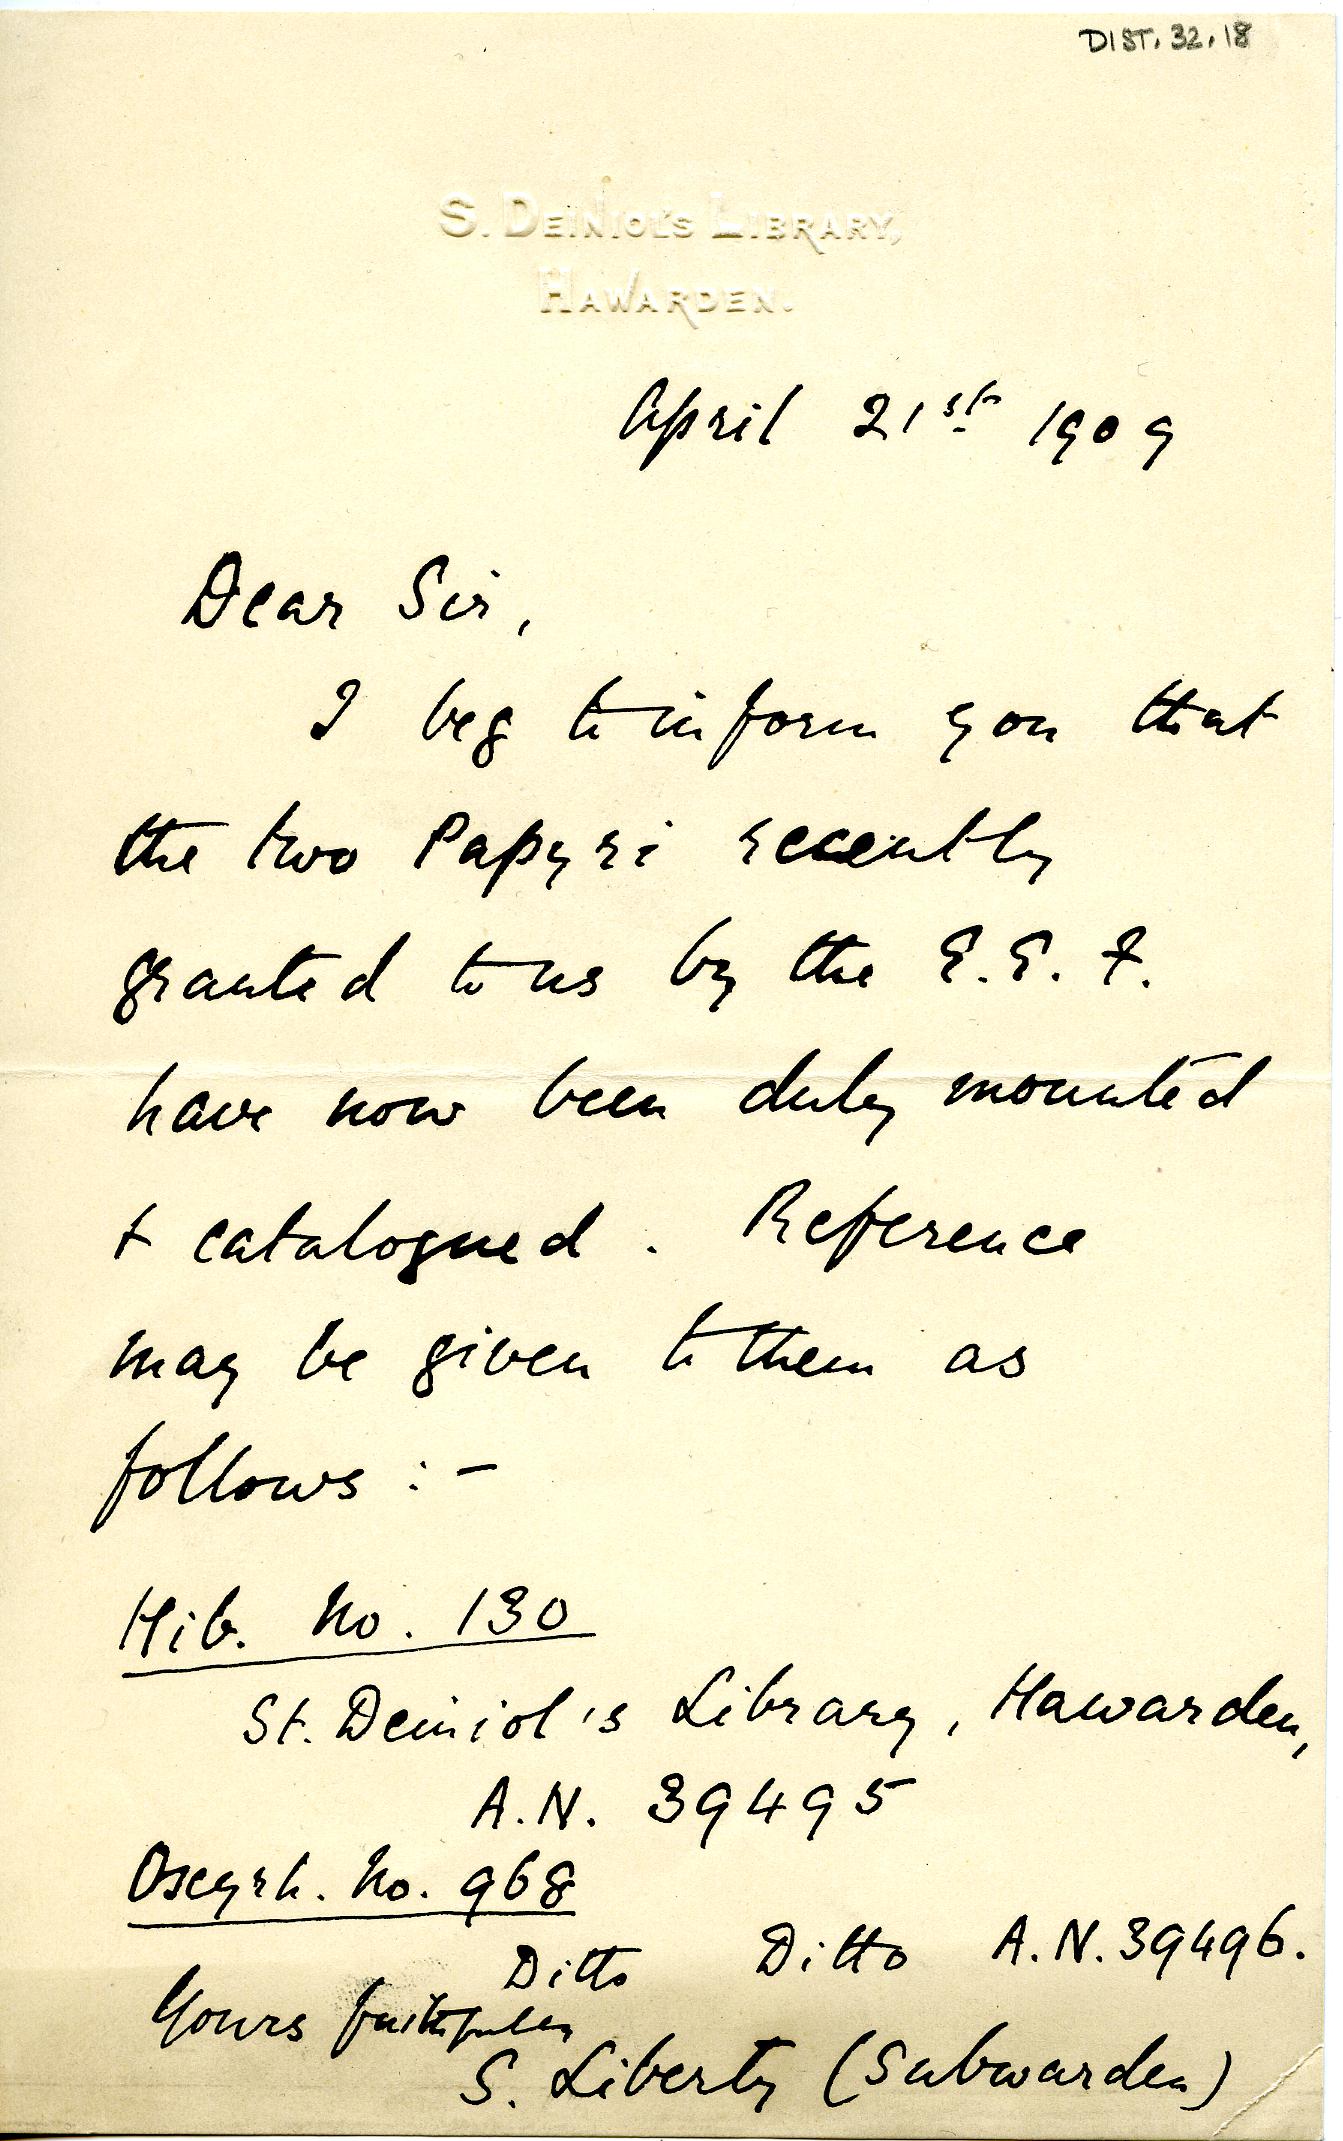 DIST. 32.18
S. DEINIOL'S LIBRARY,
HAWARDEN.
April 21st 1909
Dear Sir,
I beg to inform you that
the two Papyri recently
granted to us by the E.E.F.
have now been duly mounted
+ catalogued. Reference
may be given to them as
follows :-
Hib. No. 130
St. Deiniol's Library, Hawarden,
A.N. 39495
Oxyrh. No. 968
Ditto Ditto A.N. 39496.
Yours faithfully
S. Liberty (Subwarden)